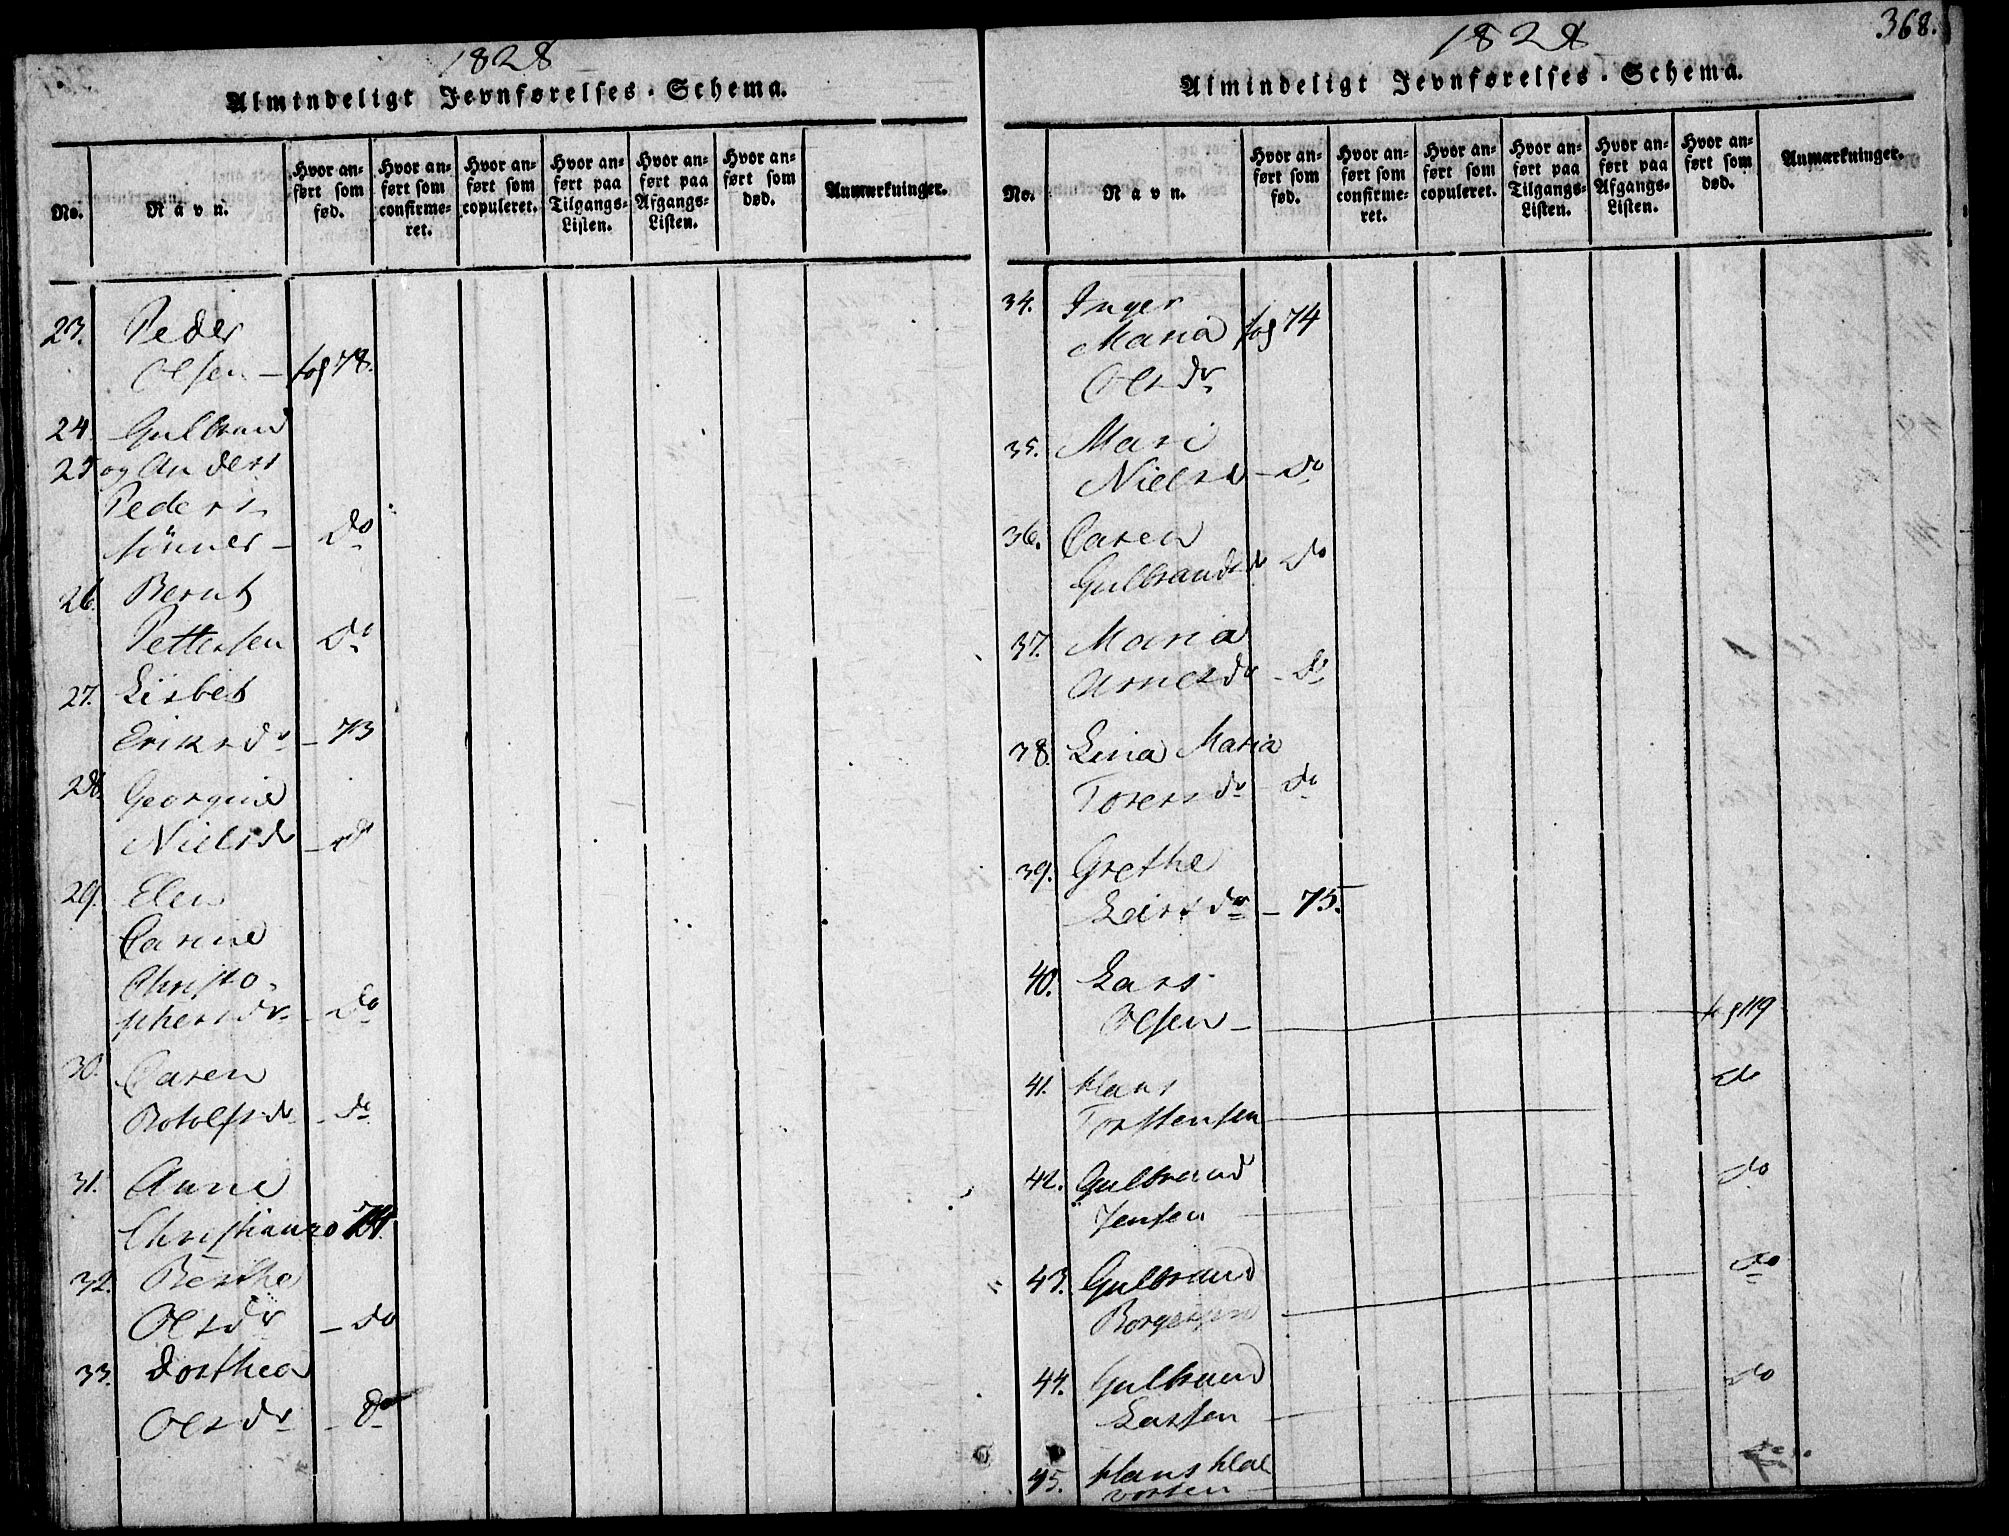 1828
Almindeligt Jevnførelses-Schema.
No.
Navn.
Hvor anført som fød.
Hvor anført som confirmeret.
Hvor anført som copuleret.
Hvor anført paa Tilgangs-Listen.
Hvor anført paa Afgangs-Listen.
Hvor anført som død.
Anmærkninger.
23. Peder
Olsen - fog 78.
24. Gulbrand
25 og Anders
Peders
sønner - do
26. Bernt
Pettersen do
27. Lisbet
Eriksdr - 73
28. Georgine
Nielsdr - do
29. Elen
Carine
Christo-
phersdr - do
30. Caren
Rotolfsdr - do
31. Anne
Christians 74.
32. Berthe
Olsdr - do
33. Dorthea
Olsdr - do
1828
368.
Almindeligt Jevnførelses-Schema.
No.
Navn.
Hvor anført som fød.
Hvor anført som confirmeret.
Hvor anført som copuleret.
Hvor anført paa Tilgangs-Listen.
Hvor anført paa Afgangs-Listen.
Hvor anført som død.
Anmærkninger.
34. Inger
Maria fog 74
Olsdr
35. Mari
Nielsd - do
36. Caren
Gulbrandsd do
37. Maria
Arnesdr - do
38. Lina Maria
Toresdr - do
39. Grethe
Larsdr - 75.
40. Lars
Olsen - fog 119
41. Hans
Torstensen do
42. Gulbrand
Jensen do
43. Gulbrand
Borgersen do
44. Gulbrand
Larsen do
45. Hans Hal
vorsen do